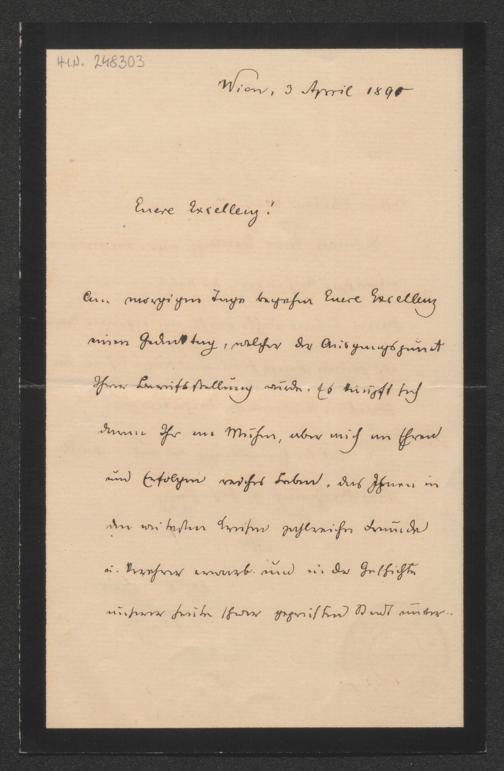 H.I.N. 248303
Wien, 3 April 1895
Euere Excellenz!
Am morgigen Tage begehen Euere Excellenz
einen Gedenktag, welcher der Ausgangspunct
Ihrer Berufsstellung wurde. Es knüpft sich
daran Ihr an Mühen, aber auch an Ehren
und Erfolgen reiches Leben, das Ihnen in
den weitesten Kreisen zahlreiche Freunde
u. Verehrer erwarb und in der Geschichte
unserer heute schwer geprüften Stadt unver-